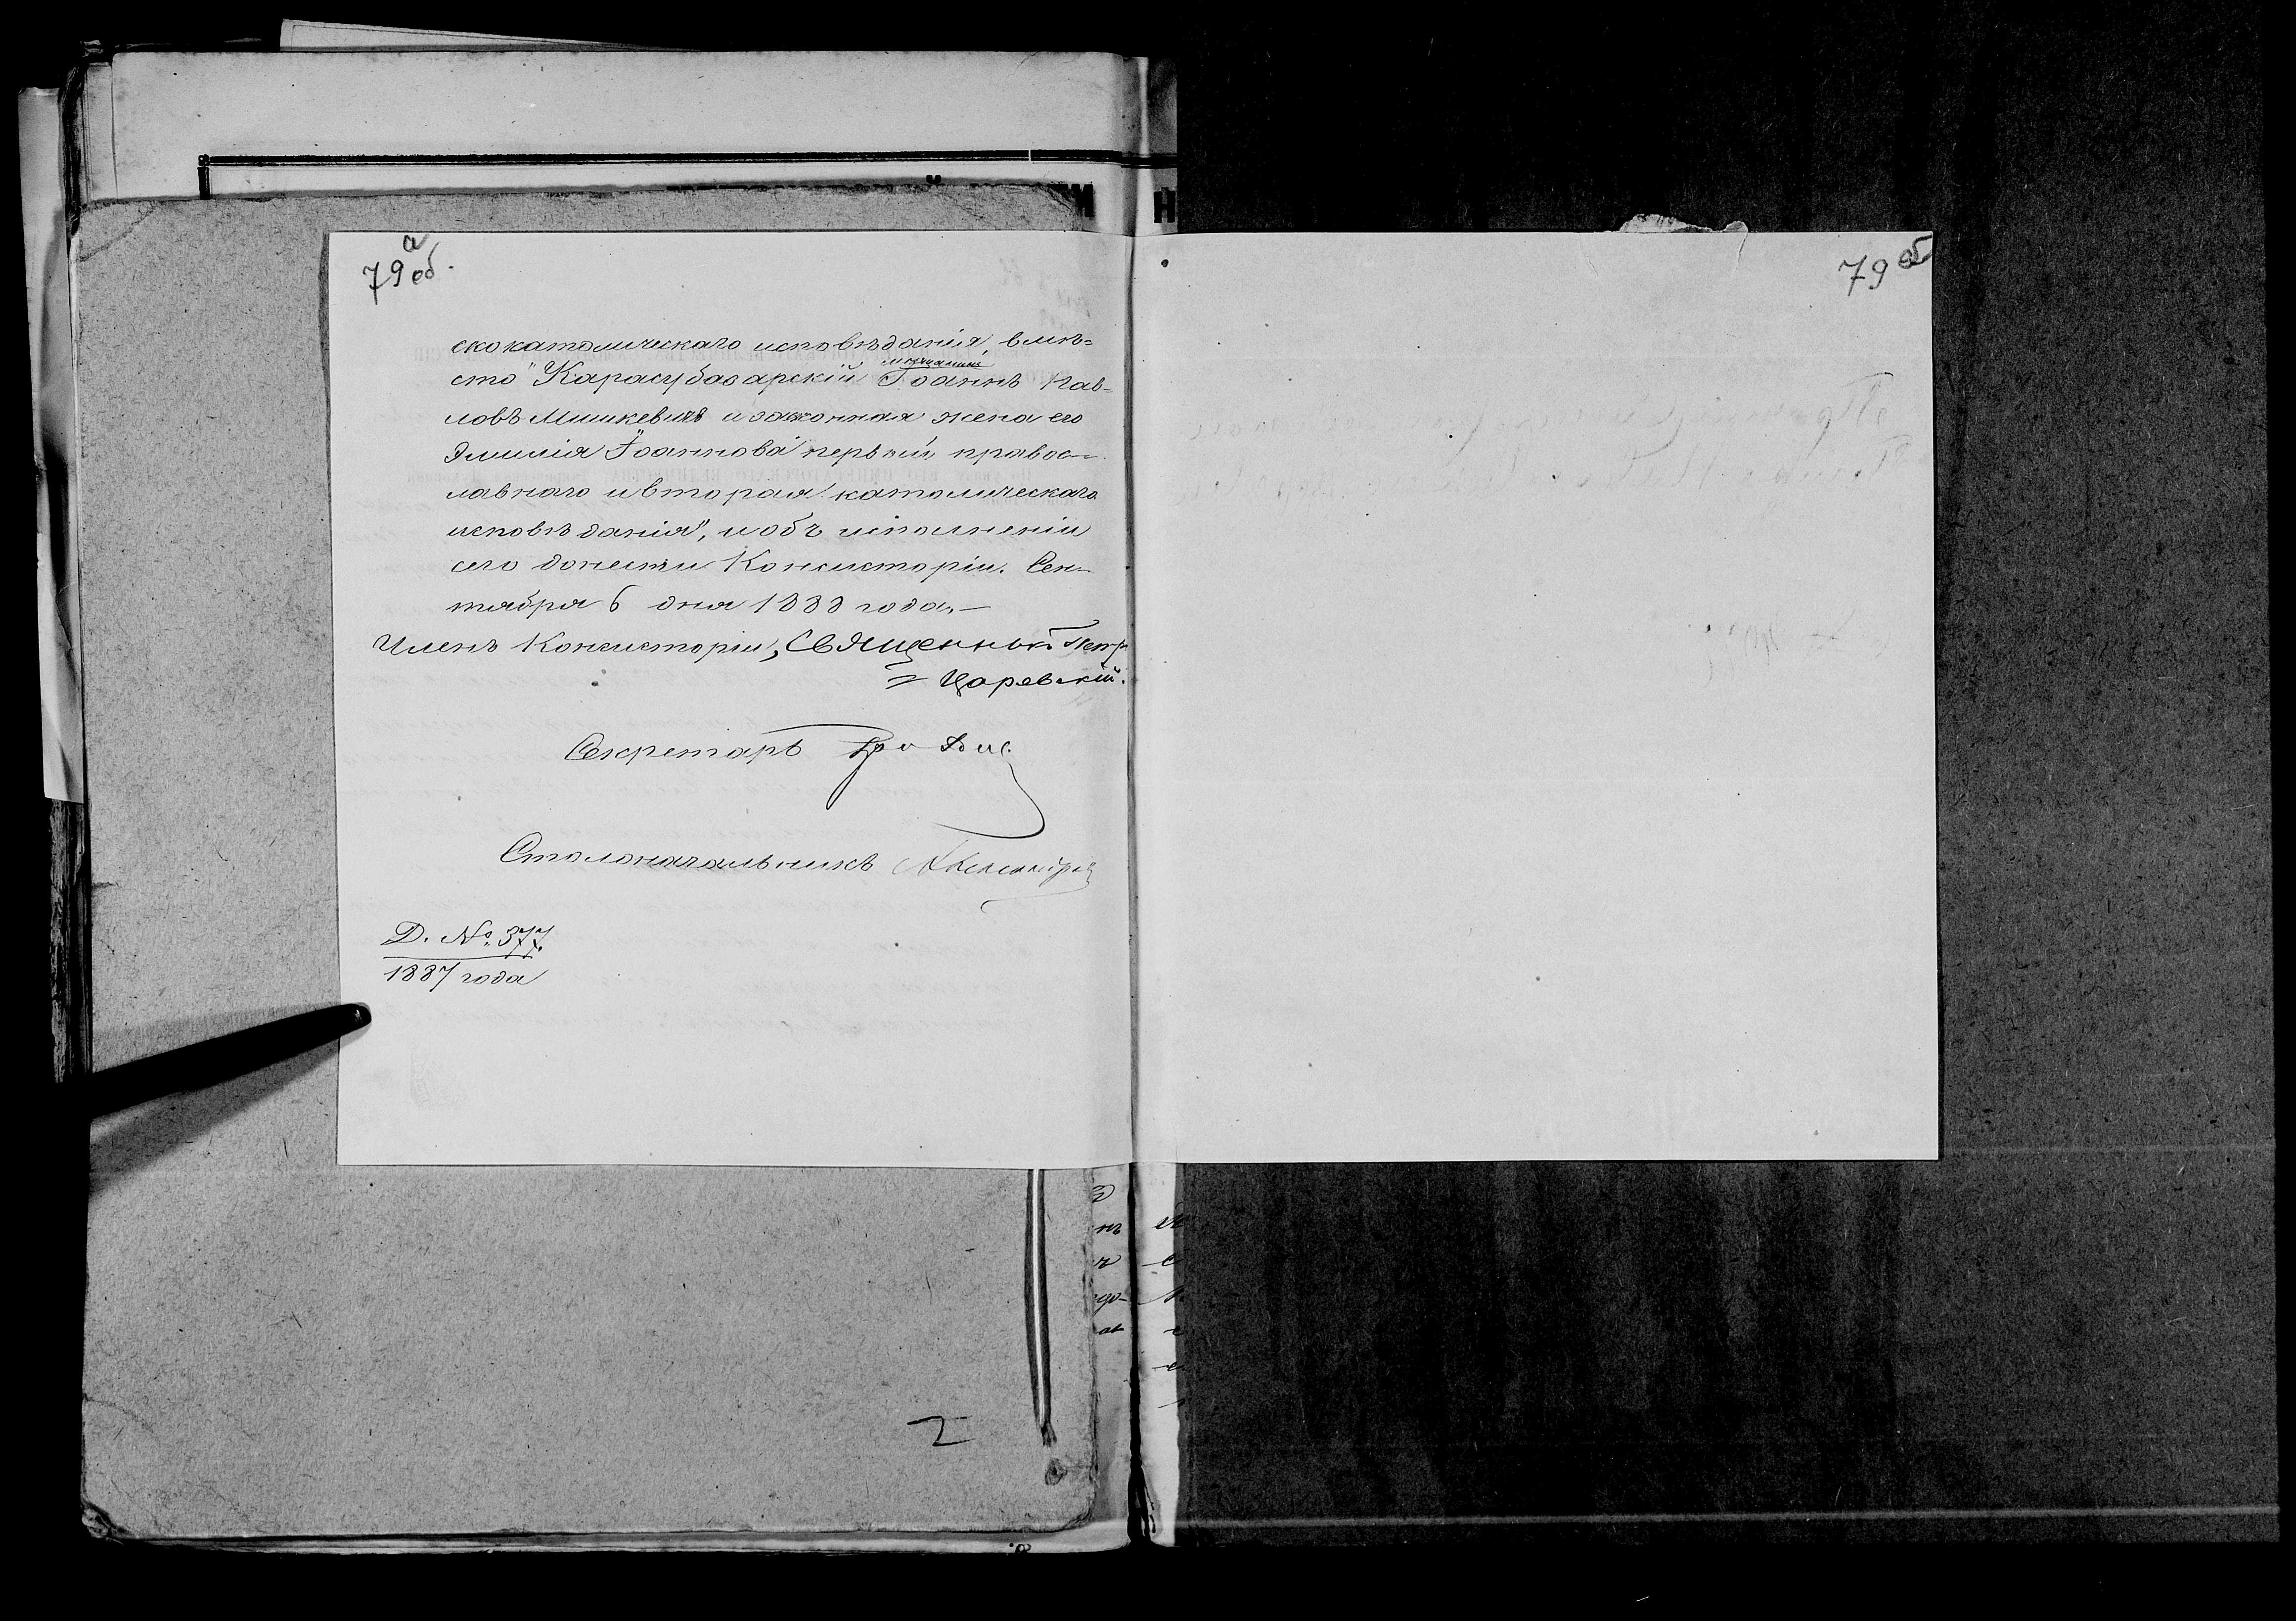 79 а об.
скокатолическаго исповѣданія, вмѣ=
сто "Карасубазарскій мѣщанинъ Іоаннъ Пав-
ловъ Мишкевичъ и законная жена его
Эмилія Іоаннова первый правос-
лавнаго и вторая католическаго
исповѣданія", и объ исполненіи
сего донести Консисторіи. Сен-
тября 6 дня 1888 года.—
Членъ Консисторіи, Священникъ Петръ
= Царевскій.
Секретарь
Столоначальникъ
Д. № 377.
1887 года
2
79 об